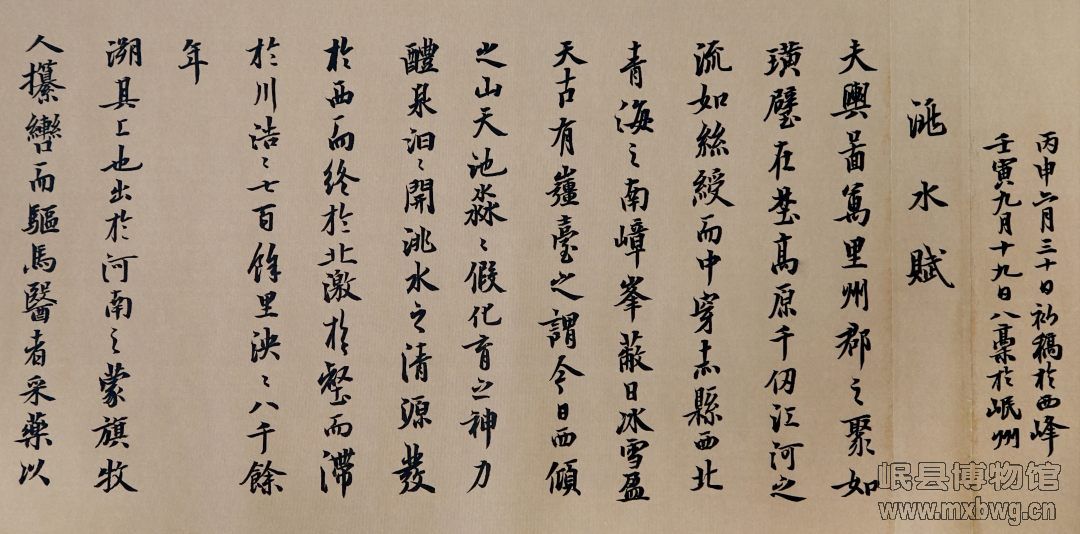 丙申六月三十日初稿於西峰
壬寅九月十九日八稾於岷州
洮水賦
夫輿啚萬里州郡之聚如
璜璧在埜高原千仞江河之
流如絲綬而中穿赤縣西北
青海之南嶂峯蔽日冰雪盈
天古有嶷臺之謂今日西傾
之山天池淼〻假化育之神力
醴泉汩〻開洮水之清源發
於西而終於北激於壑而滯
於川浩〻七百餘里泱〻八千餘
年
溯其上也出於河南之蒙旗牧
人攥轡而驅馬醫者采藥以
岷县博物馆
www.mxbwg.cn